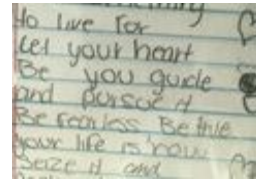 to live for
Let your heart
Be you guide
and pursue it
Be fearless Be true
your life is now
Seize it and